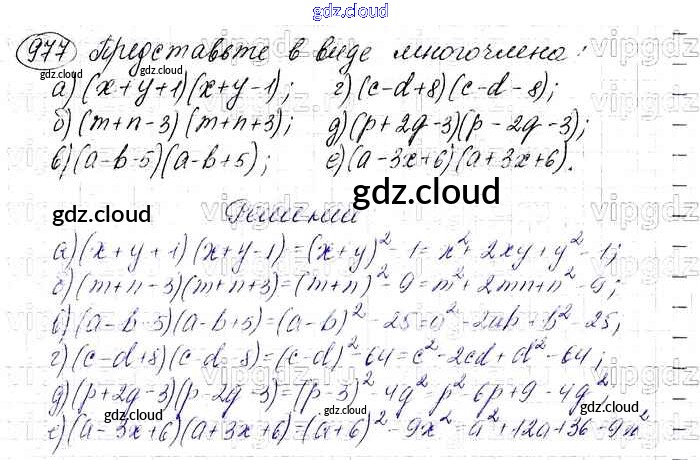 gdz.cloud
977 Представьте в виде многочлена:
а) (x+y+1)(x+y-1); г) (c-d+8)(c-d-8);
б) (m+n-3)(m+n+3); д) (p+2q-3)(p-2q-3);
в) (a-b-5)(a-b+5); е) (a-3x+6)(a+3x+6).
gdz.cloud
gdz.cloud
Решение
а) (x+y+1)(x+y-1)=(x+y)²-1=x²+2xy+y²-1;
б) (m+n-3)(m+n+3)=(m+n)²-9=m²+2mn+n²-9;
в) (a-b-5)(a-b+5)=(a-b)²-25=a²-2ab+b²-25;
г) (c-d+8)(c-d-8)=(c-d)²-64=c²-2cd+d²-64;
д) (p+2q-3)(p-2q-3)=(p-3)²-4q²=p²-6p+9-4q²;
е) (a-3x+6)(a+3x+6)=(a+6)²-9x²=a²+12a+36-9x²